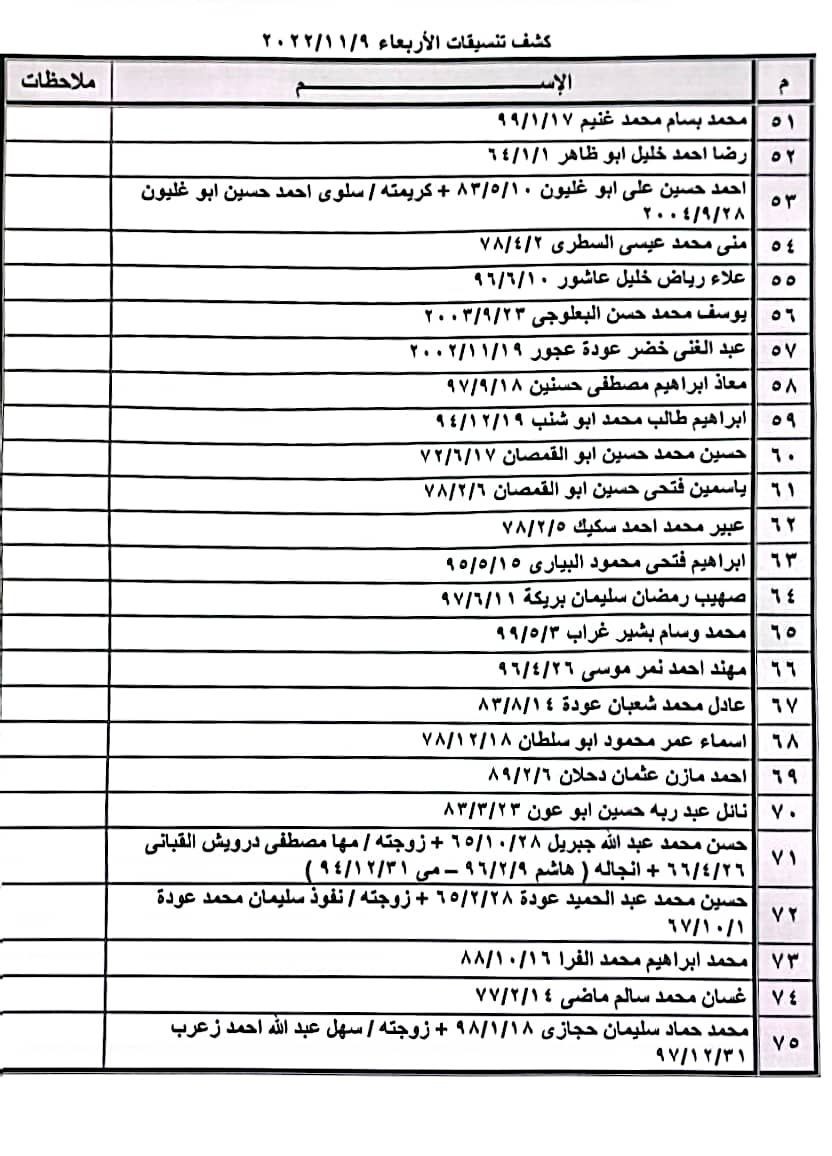 كشف تنسيقات الأربعاء ٢٠٢٢/١١/٩
م الإســـم ملاحظات
٥١ محمد بسام محمد غنيم ٩٩/١/١٧
٥٢ رضا احمد خليل ابو ظاهر ٦٤/١/١
٥٣ احمد حسين على ابو غليون ٨٣/٥/١٠ + كريمته / سلوى احمد حسين ابو غليون
٢٠٠٤/٩/٢٨
٥٤ منى محمد عيسى السطرى ٧٨/٤/٢
٥٥ علاء رياض خليل عاشور ٩٦/٦/١٠
٥٦ يوسف محمد حسن البعلوجى ٢٠٠٣/٩/٢٣
٥٧ عبد الغنى خضر عودة عجور ٢٠٠٢/١١/١٩
٥٨ معاذ ابراهيم مصطفى حسنين ٩٧/٩/١٨
٥٩ ابراهيم طالب محمد ابو شنب ٩٤/١٢/١٩
٦٠ حسين محمد حسين ابو القمصان ٧٢/٦/١٧
٦١ ياسمين فتحى حسين ابو القمصان ٧٨/٢/٦
٦٢ عبير محمد احمد سكيك ٧٨/٢/٥
٦٣ ابراهيم فتحى محمود البيارى ٩٥/٥/١٥
٦٤ صهيب رمضان سليمان بريكة ٩٧/٦/١١
٦٥ محمد وسام بشير غراب ٩٩/٥/٣
٦٦ مهند احمد نمر موسى ٩٦/٤/٢٦
٦٧ عادل محمد شعبان عودة ٨٣/٨/١٤
٦٨ اسماء عمر محمود ابو سلطان ٧٨/١٢/١٨
٦٩ احمد مازن عثمان دحلان ٨٩/٢/٦
٧٠ نائل عبد ربه حسين ابو عون ٨٣/٣/٢٣
٧١ حسن محمد عبد الله جبريل ٦٥/١٠/٢٨ + زوجته / مها مصطفى درويش القبانى
٦٦/٤/٢٦ + انجاله ( هاشم ٩٦/٢/٩ – مى ٩٤/١٢/٣١ )
٧٢ حسين محمد عبد الحميد عودة ٦٥/٢/٢٨ + زوجته / نفوذ سليمان محمد عودة
٦٧/١٠/١
٧٣ محمد ابراهيم محمد الفرا ٨٨/١٠/١٦
٧٤ غسان محمد سالم ماضى ٧٧/٢/١٤
٧٥ محمد حماد سليمان حجازى ٩٨/١/١٨ + زوجته / سهل عبد الله احمد زعرب
٩٧/١٢/٣١